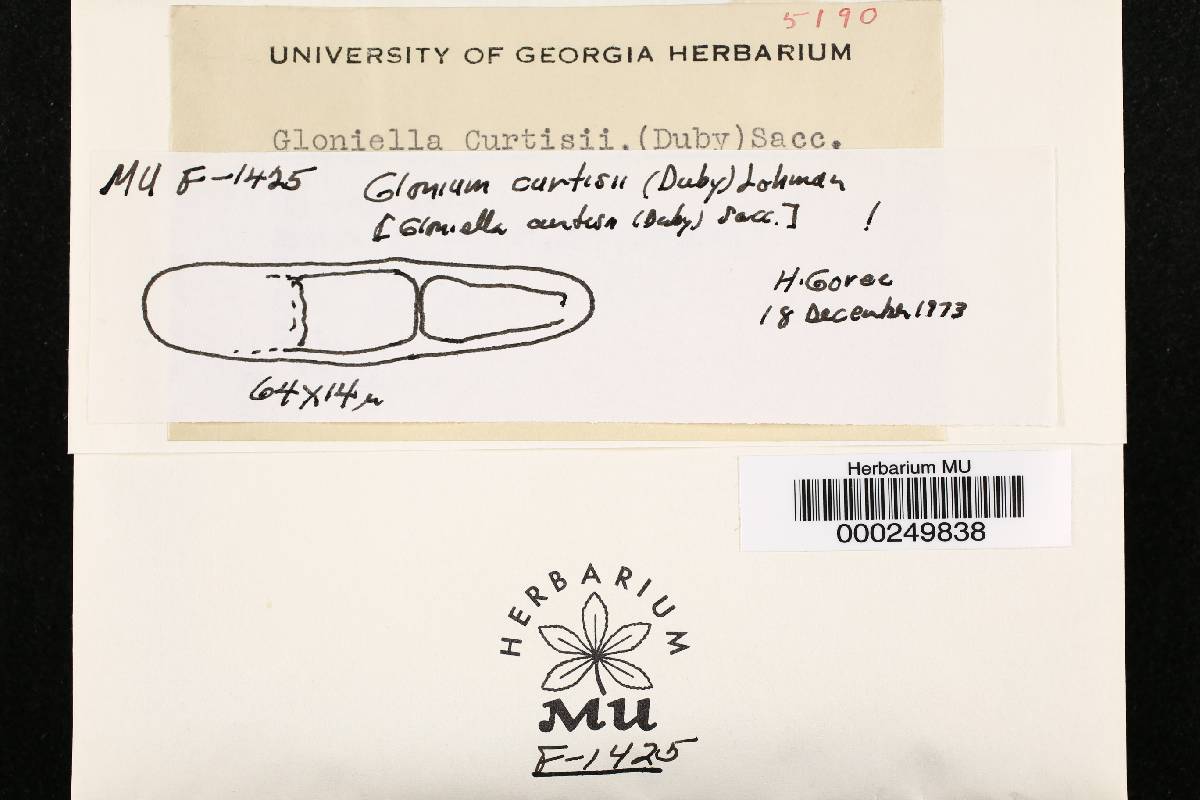 5190
UNIVERSITY OF GEORGIA HERBARIUM
Gloniella Curtisii.(Duby)Sacc.
MU F-1425 Glonium curtisii (Duby) Lohman
[Gloniella curtisii (Duby) Sacc.] !
H. Gorec
18 December 1973
64X14µ
Herbarium MU
000249838
HERBARIUM
MU
F-1425